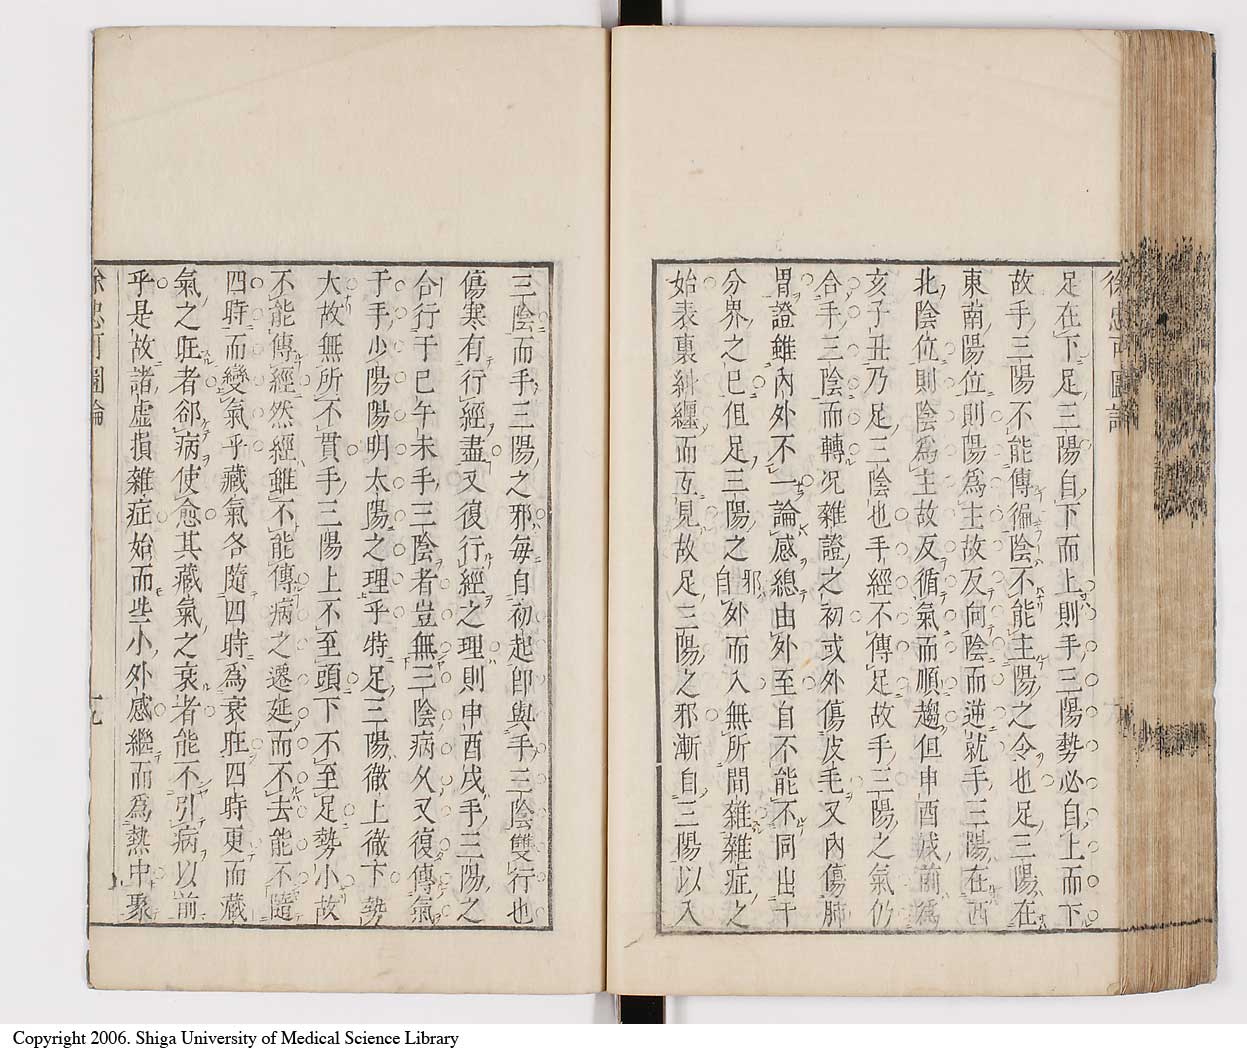 足在下足三陽自下而上則手三陽勢必自上而下
故手三陽不能傳徧陰不能主陽之令也足三陽在
東南陽位則陽爲主故反向陰而逆就手三陽在西
北陰位則陰爲主故反循氣而順趨但申酉戌前爲
亥子丑乃足三陰也手經不傳足故手三陽之氣仍
合手三陰而轉况雜證之初或外傷皮毛又內傷肺
胃證雖內外不一論感總由外至自不能不同出于
分界之巳但足三陽之邪自外而入無所間雜雜症之
始表裏糾纏而互見故足三陽之邪漸自三陽以入
三陰而手三陽之邪每自初起卽與手三陰雙行也
傷寒有行經盡又復行經之理則申酉戌手三陽之
合行于巳午未手三陰者豈無三陰病久又復傳氣
于手少陽陽明太陽之理乎特足三陽徹上徹下勢
大故無所不貫手三陽上不至頭下不至足勢小故
不能傳經然經雖不能傳病之遷延而不去能不隨
四時而變氣乎藏氣各隨四時爲衰旺四時更而藏
氣之旺者郤病使愈其藏氣之衰者能不引病以前
乎是故諸虛損雜症始而些小外感繼而爲熱中聚
徐忠可圖論
十九
Copyright 2006. Shiga University of Medical Science Library